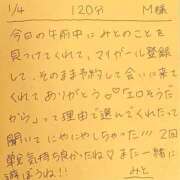 1/4 120分 M様
今日の午前中にみとのことを
見つけてくれて、マリガール登録
して、そのまま予約して会いに来て
くれてありがとう♡“エロそうだ
から”って理由で選んでくれたって
聞いてにやにやしちゃった!!! 2回
戦も気持ち良かったね♡また一緒に
遊ぼうね!! みと